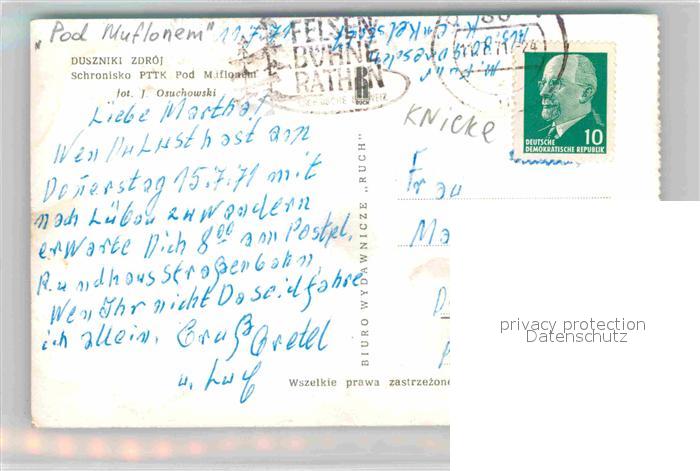 "Pod Muflonem" 11.7.71
DUSZNIKI ZDRÓJ
Schronisko PTTK Pod Muflonem
fot. J. Osuchowski
FELSEN
BÜHNE
RATHEN
Knicke
DEUTSCHE
DEMOKRATISCHE REPUBLIK
10
Liebe Martha!
Wen Du Lust hast am
Donerstag 15.7.71 mit
nach Lübau zu wandern
erwarte Dich 8⁰⁰ am Postpl.
Rundhaus Straßenbahn
Wen Ihr nicht Da seid fahre
ich allein. Gruß Gretel
u.
BIURO WYDAWNICZE „RUCH"
Frau
Ma
Wszelkie prawa zastrzeżone
privacy protection
Datenschutz